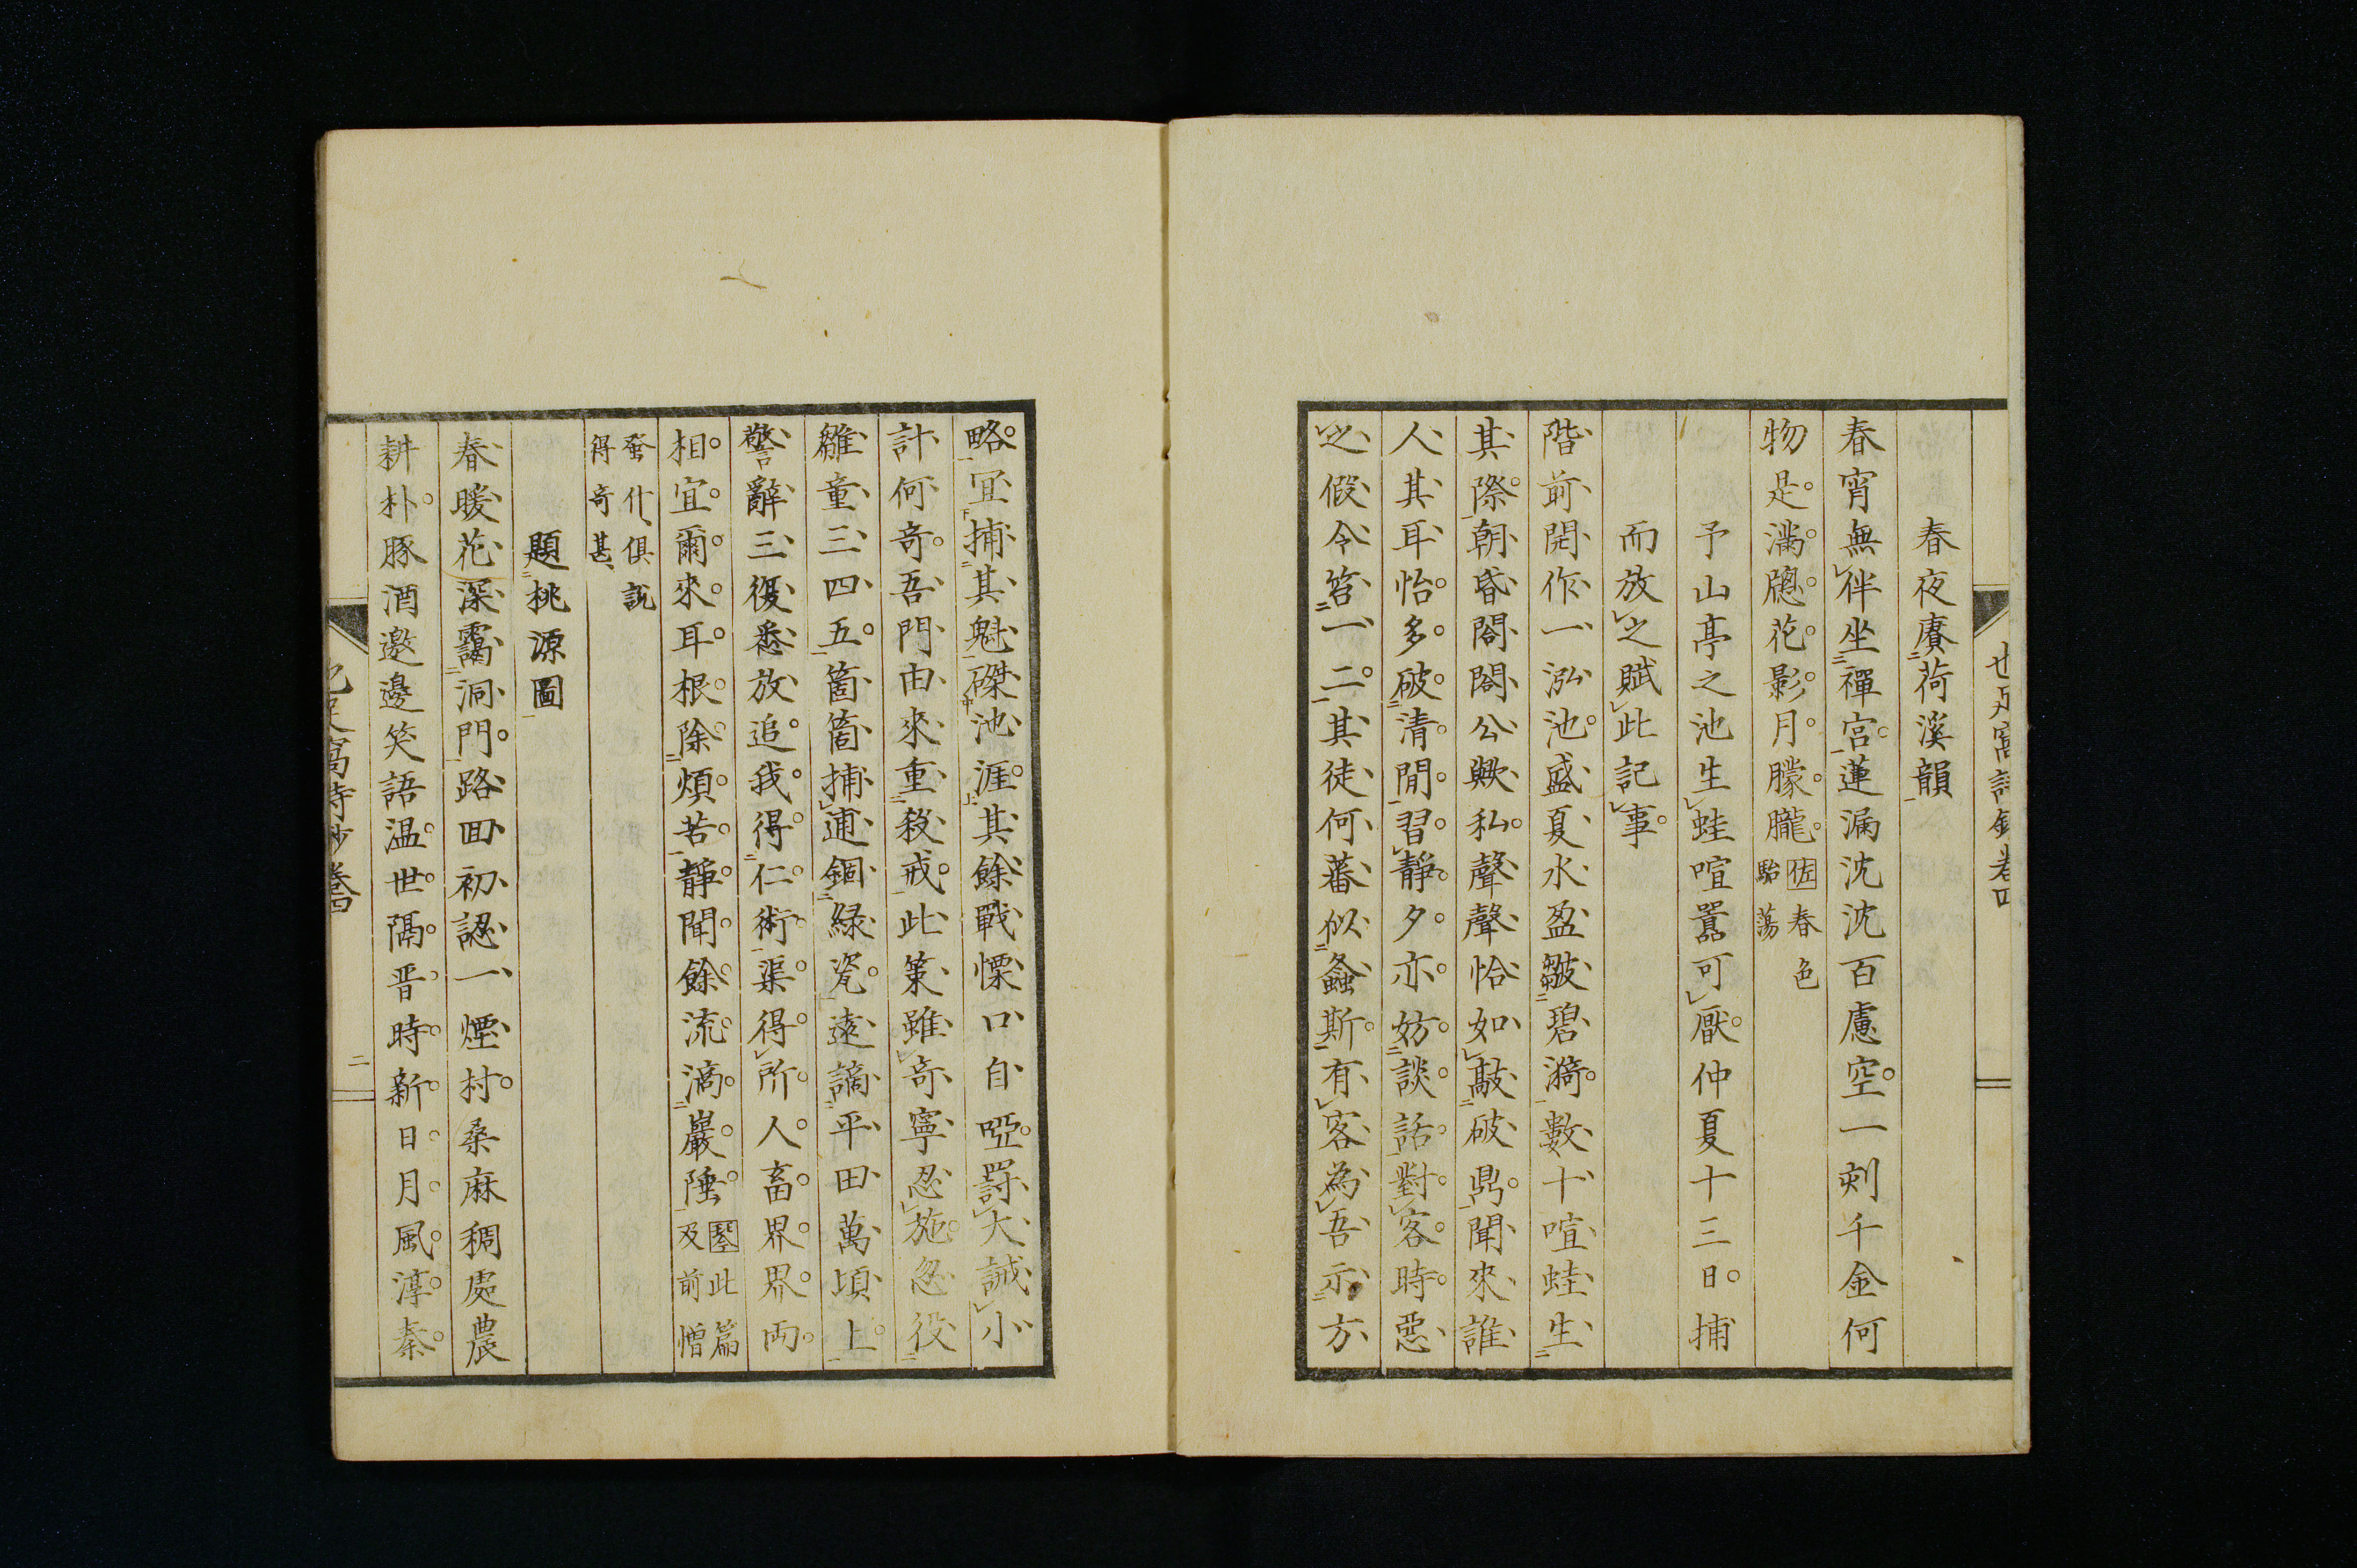 春夜賡荷溪韻
春宵無伴坐禪宮蓮漏沈沈百慮空一刻千金何
物是滿牎花影月朦朧佐春色
駘蕩
予山亭之池生蛙喧囂可厭仲夏十三日捕
而放之賦此記事
階前開作一泓池盛夏水盈皺碧漪數十喧蛙生
其際朝昏閤閤公歟私聲聲恰如敲破鼎聞來誰
人其耳怡多破清閒習靜夕亦妨談話對客時惡
之假令笞一二其徒何蕃似螽斯有客為吾示方
略宜捕其魁磔池涯其餘戰慄口自啞罸大誡小
計何奇吾門由來重殺戒此策雖奇寧忍施忽役
雛童三四五箇箇捕逋錮綠瓷遠謫平田萬頃上
警辭三復悉放追我得仁術渠得所人畜界界両
相宜爾來耳根除煩苦靜聞餘流滴巖陲此篇
及前憎
蚤什俱說
得奇甚
題桃源圖
春暖花深靄洞門路回初認一煙村桑麻稠處農
耕朴豚酒邀邊笑語温世隔晋時新日月風淳秦
二